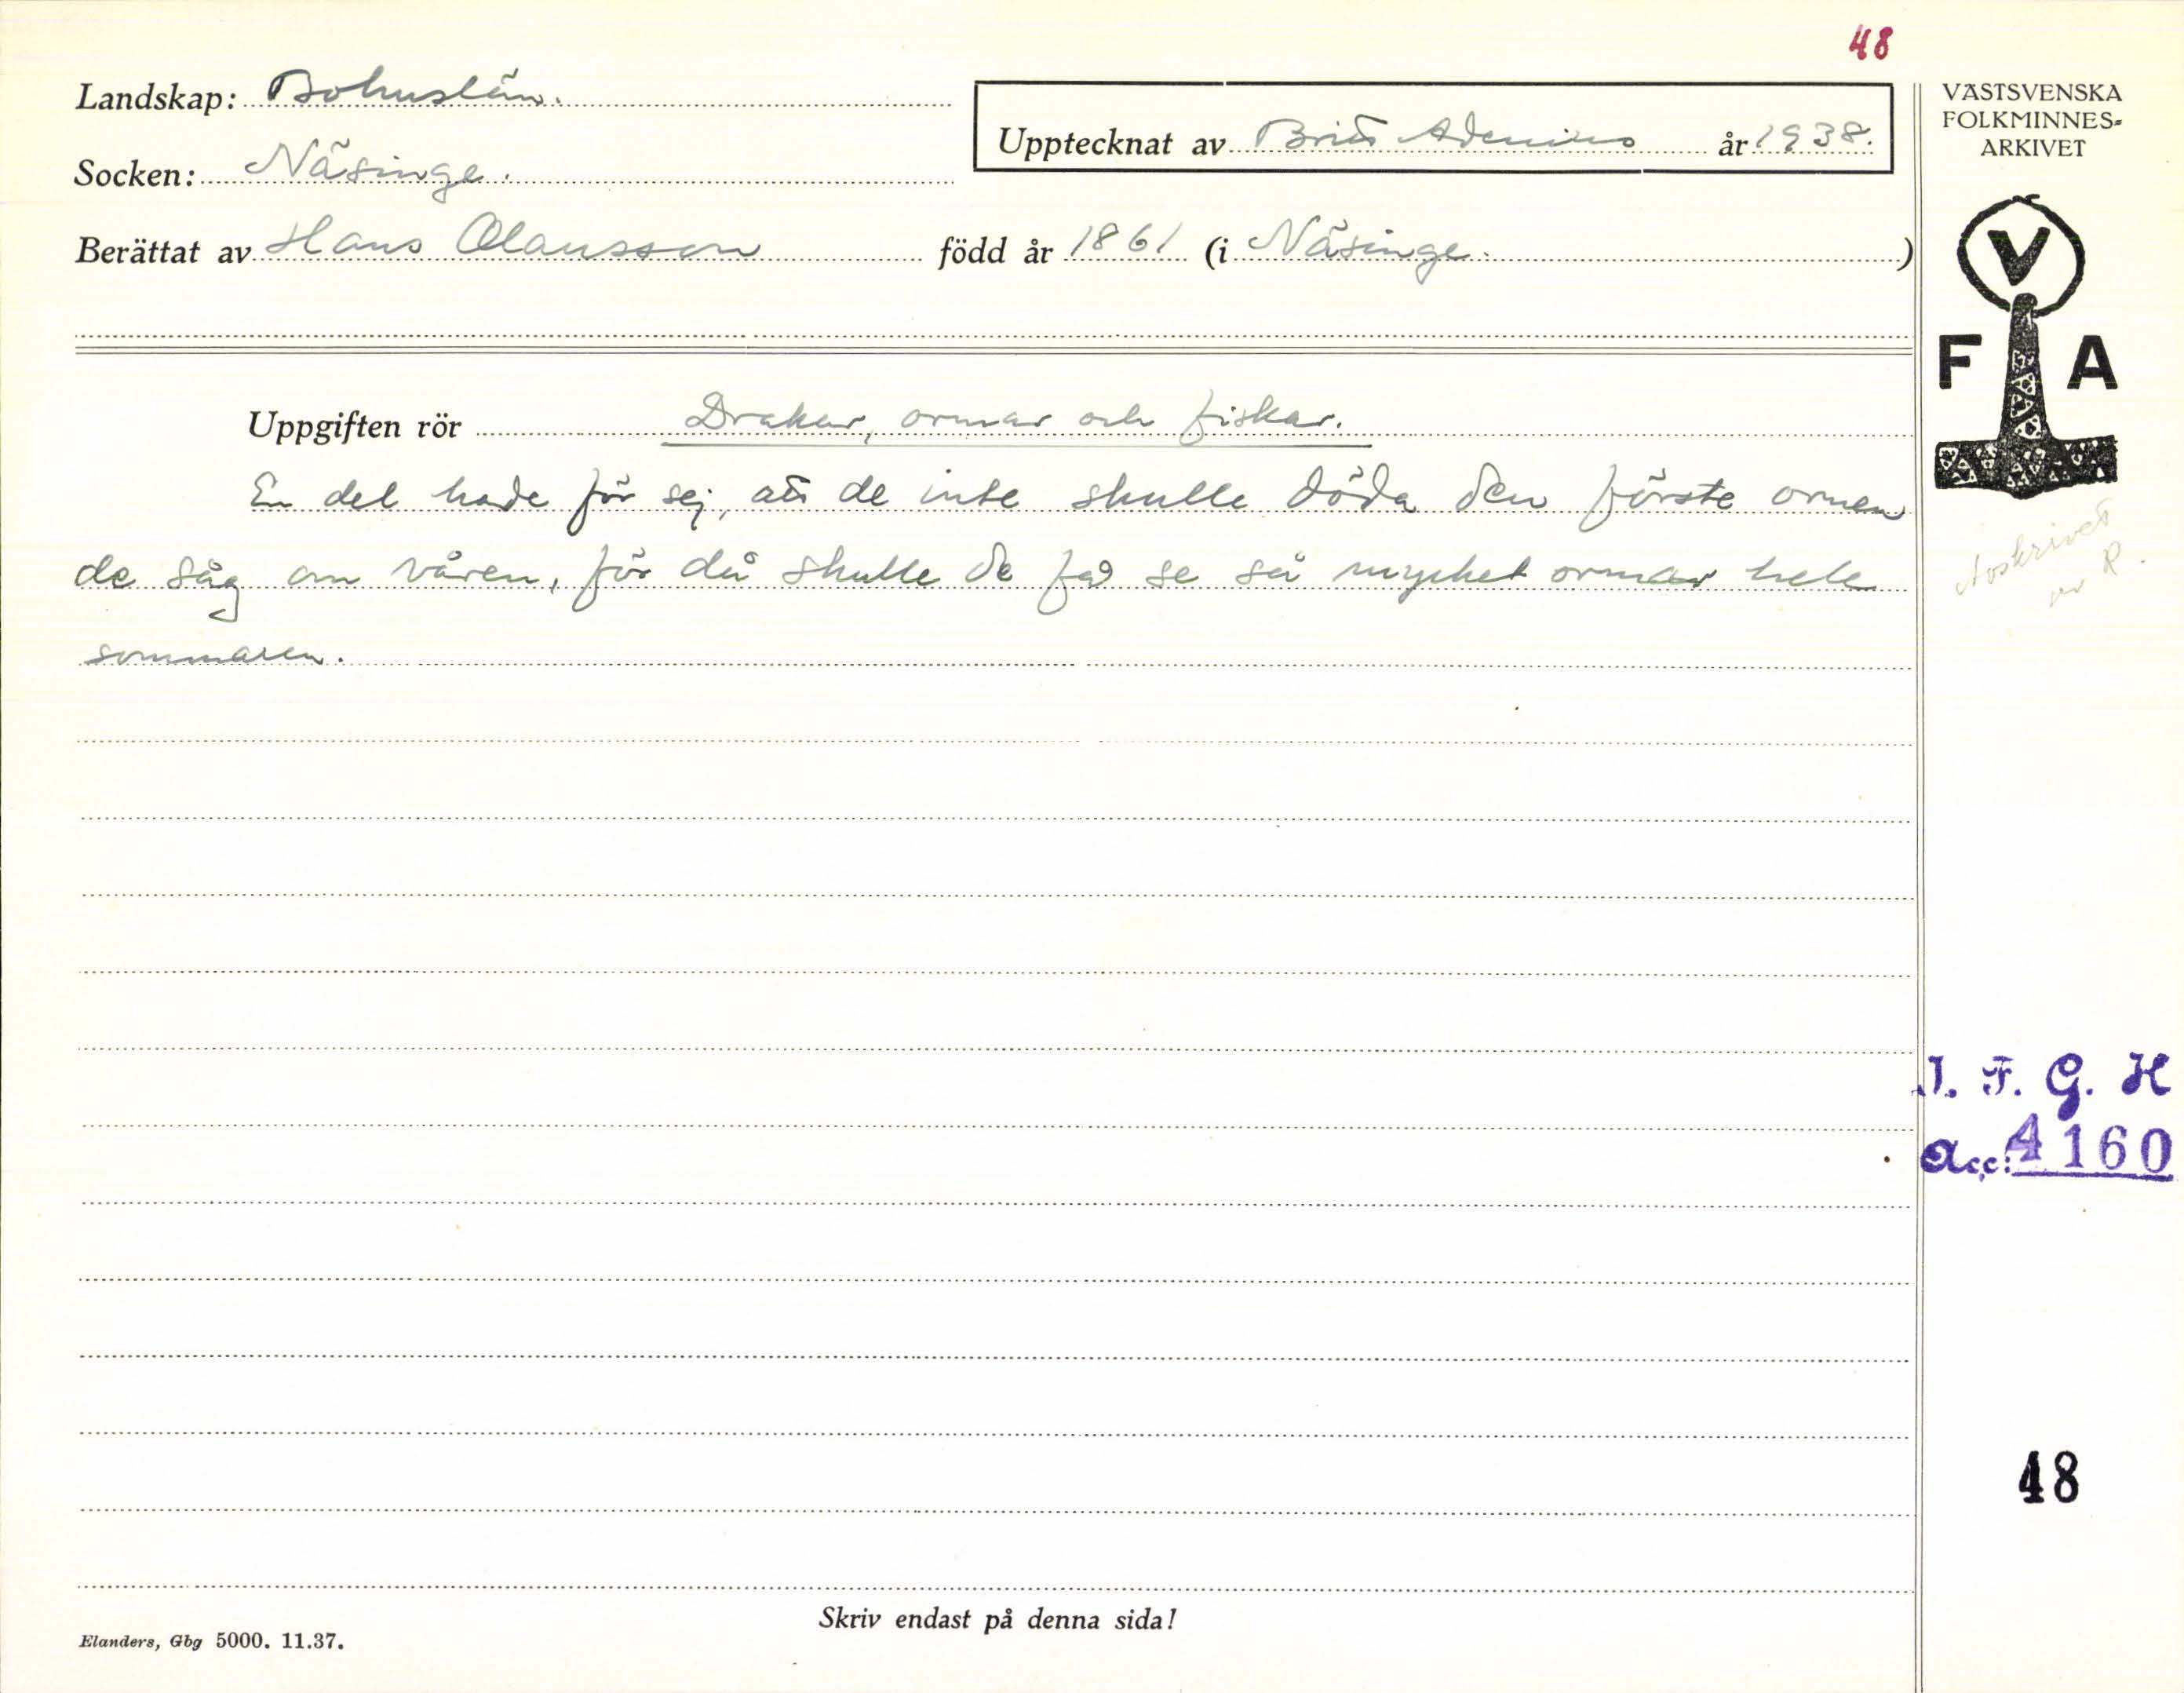 48
Landskap: Bohuslän.
Upptecknat av Britt Adenius år 1938.
Socken: Näsinge.
Berättat av Hans Olausson född år 1861 (i Näsinge.)
Uppgiften rör Drakar, ormar och fiskar.
En del hade för sej, att de inte skulle döda den förste ormen
de såg om våren, för då skulle de få se så mycket ormar hele
sommaren.
VÄSTSVENSKA
FOLKMINNES=
ARKIVET
V
F A
Avskrivet
av R.
I. F. G. H
acc: 4160
48
Skriv endast på denna sida!
Elanders, Gbg 5000. 11.37.